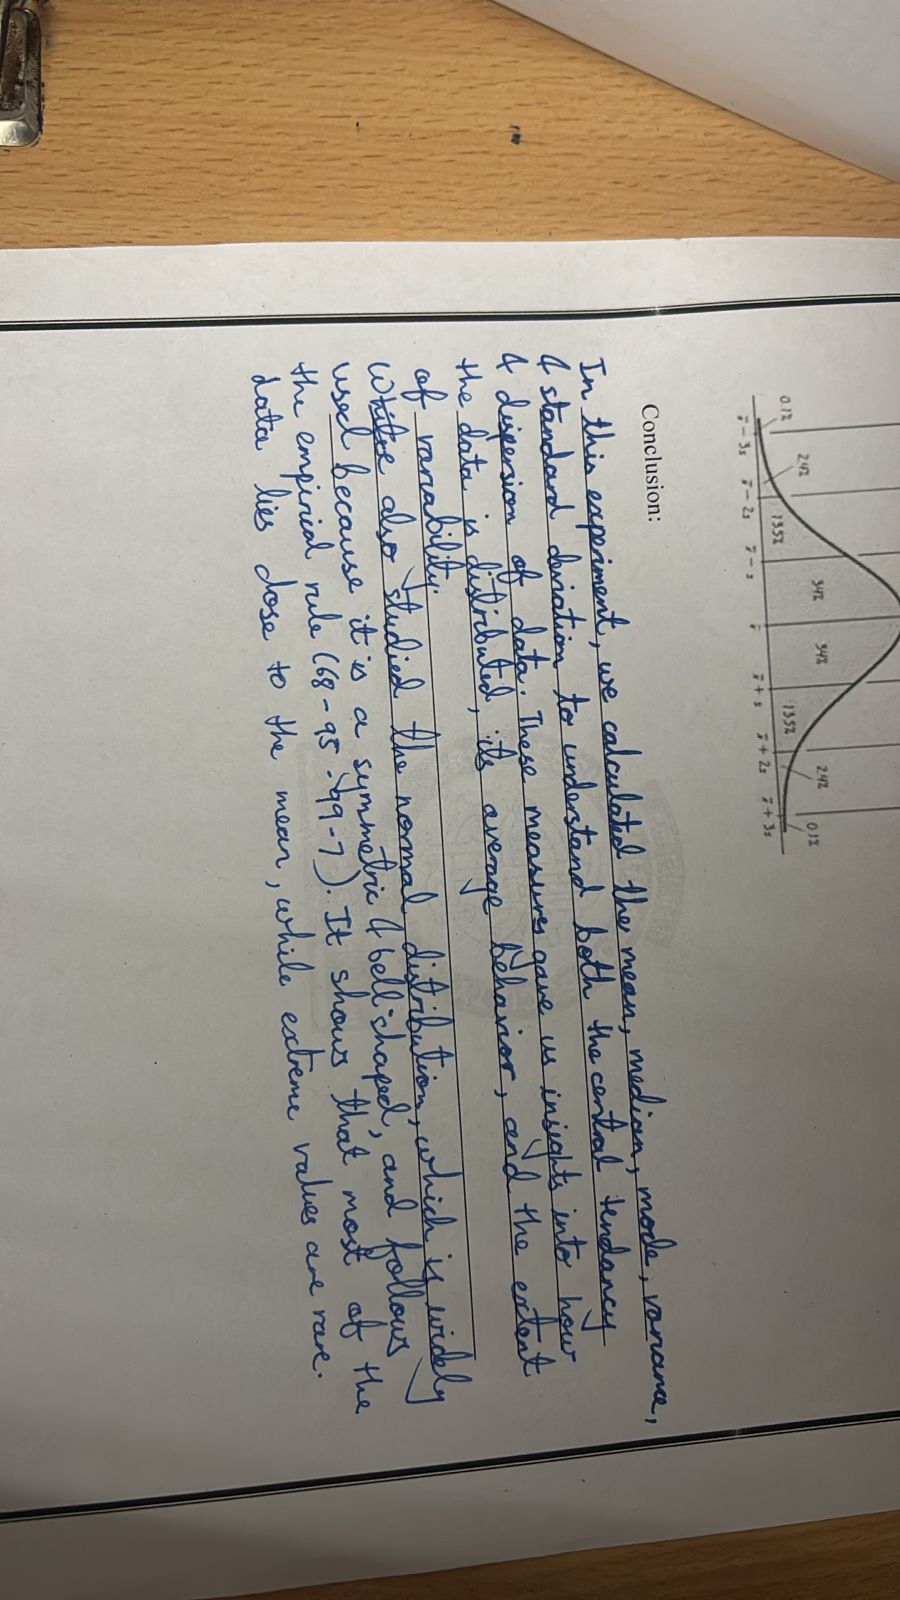 0.1% 2.4% 13.5% 34% 34% 13.5% 2.4% 0.1%
x̄ - 3s x̄ - 2s x̄ - s x̄ x̄ + s x̄ + 2s x̄ + 3s
Conclusion:
In this experiment, we calculated the mean, median, mode, variance,
& standard deviation to understand both the central tendancy
& dispersion of data. These measures gave us insights into how
the data is distributed, its average behavior, and the extent
of variability.
We also studied the normal distribution, which is widely
used because it is a symmetric & bell-shaped, and follows
the empirical rule (68-95-99-7). It shows that most of the
data lies close to the mean, while extreme values are rare.